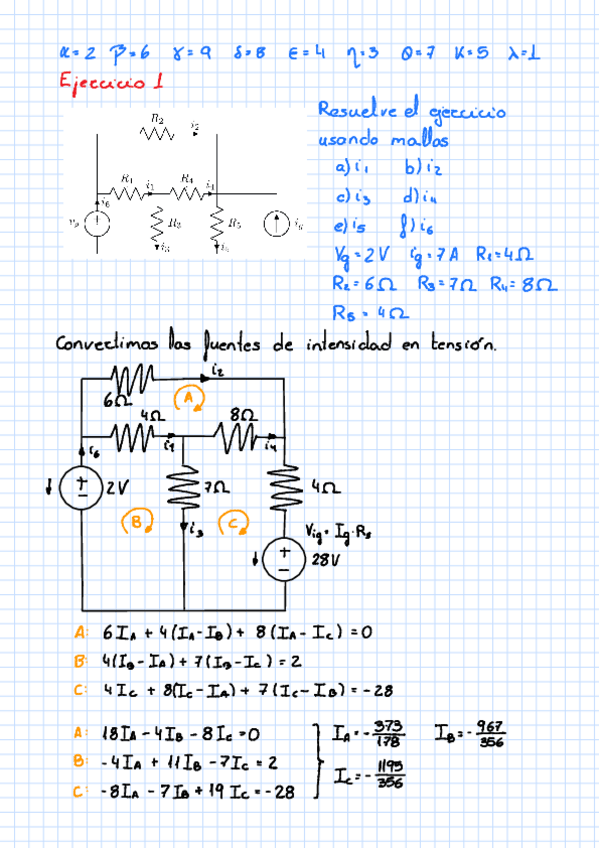 α=2 β=6 γ=9 δ=8 ε=4 η=3 θ=7 κ=5 λ=1
Ejercicio 1
Resuelve el ejercicio
usando mallas
a) i₁ b) i₂
c) i₃ d) i₄
e) i₅ f) i₆
Vg=2V ig=7A R₁=4Ω
R₂=6Ω R₃=7Ω R₄=8Ω
R₅=4Ω
R₂ i₂
R₁ i₁ R₄ i₄
i₆
vg R₃ R₅ ig
i₃
Convertimos las fuentes de intensidad en tensión.
i₂
6Ω A
4Ω 8Ω
i₆ i₁ i₄
+ 2V 7Ω 4Ω
-
B C
i₃ Vig=Ig·R₅
+ 28V
-
A: 6IA + 4(IA-IB) + 8(IA-IC) = 0
B: 4(IB-IA) + 7(IB-IC) = 2
C: 4IC + 8(IC-IA) + 7(IC-IB) = -28
A: 18IA - 4IB - 8IC = 0
B: -4IA + 11IB - 7IC = 2
C: -8IA - 7IB + 19IC = -28
IA = -373/178 IB = -967/356
IC = -1195/356